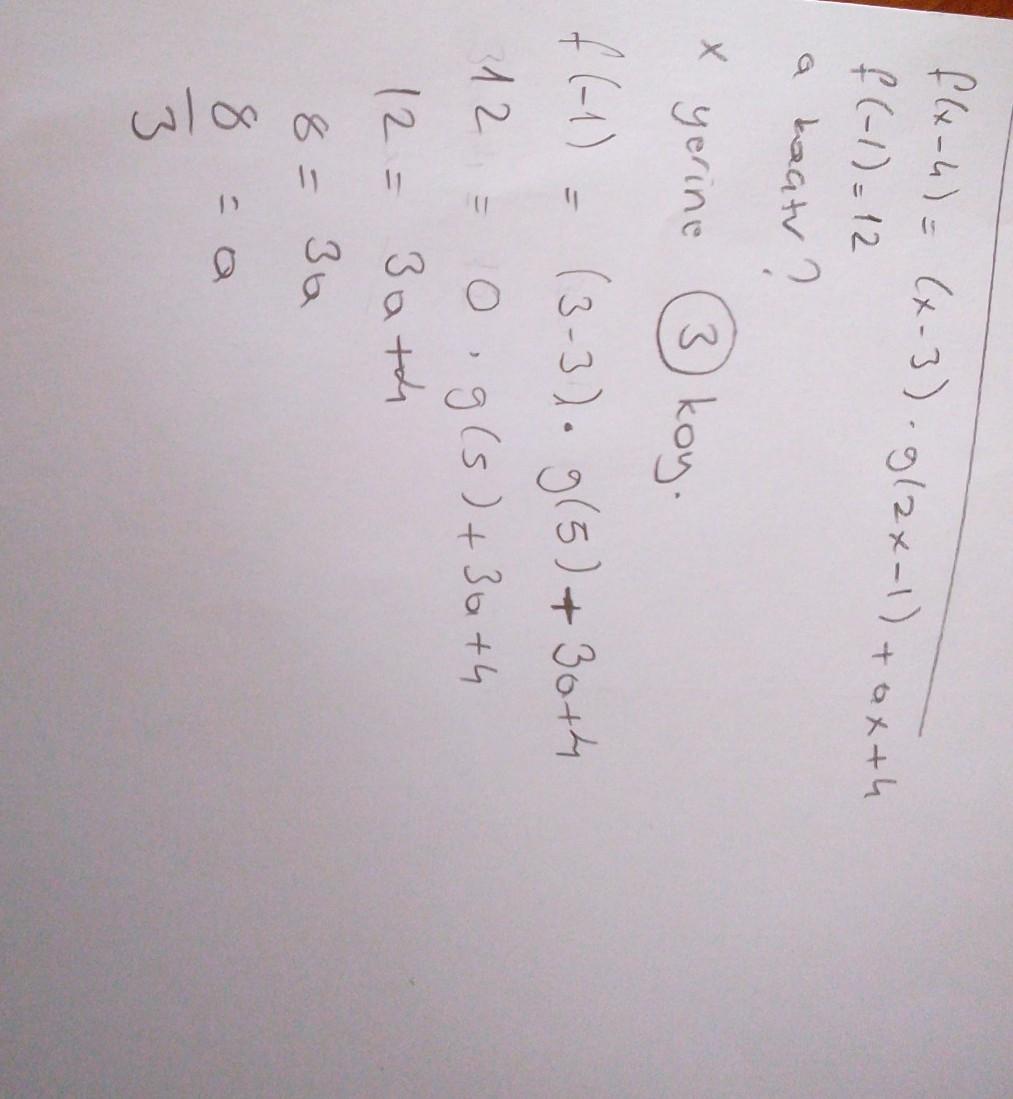 f(x-4) = (x-3).g(2x-1)+ax+4
f(-1)=12
a kaçtır?
x yerine 3 koy.
f(-1) = (3-3). g(5)+3a+4
12 = 0.g(5)+3a+4
12 = 3a+4
8 = 3a
8/3 = a